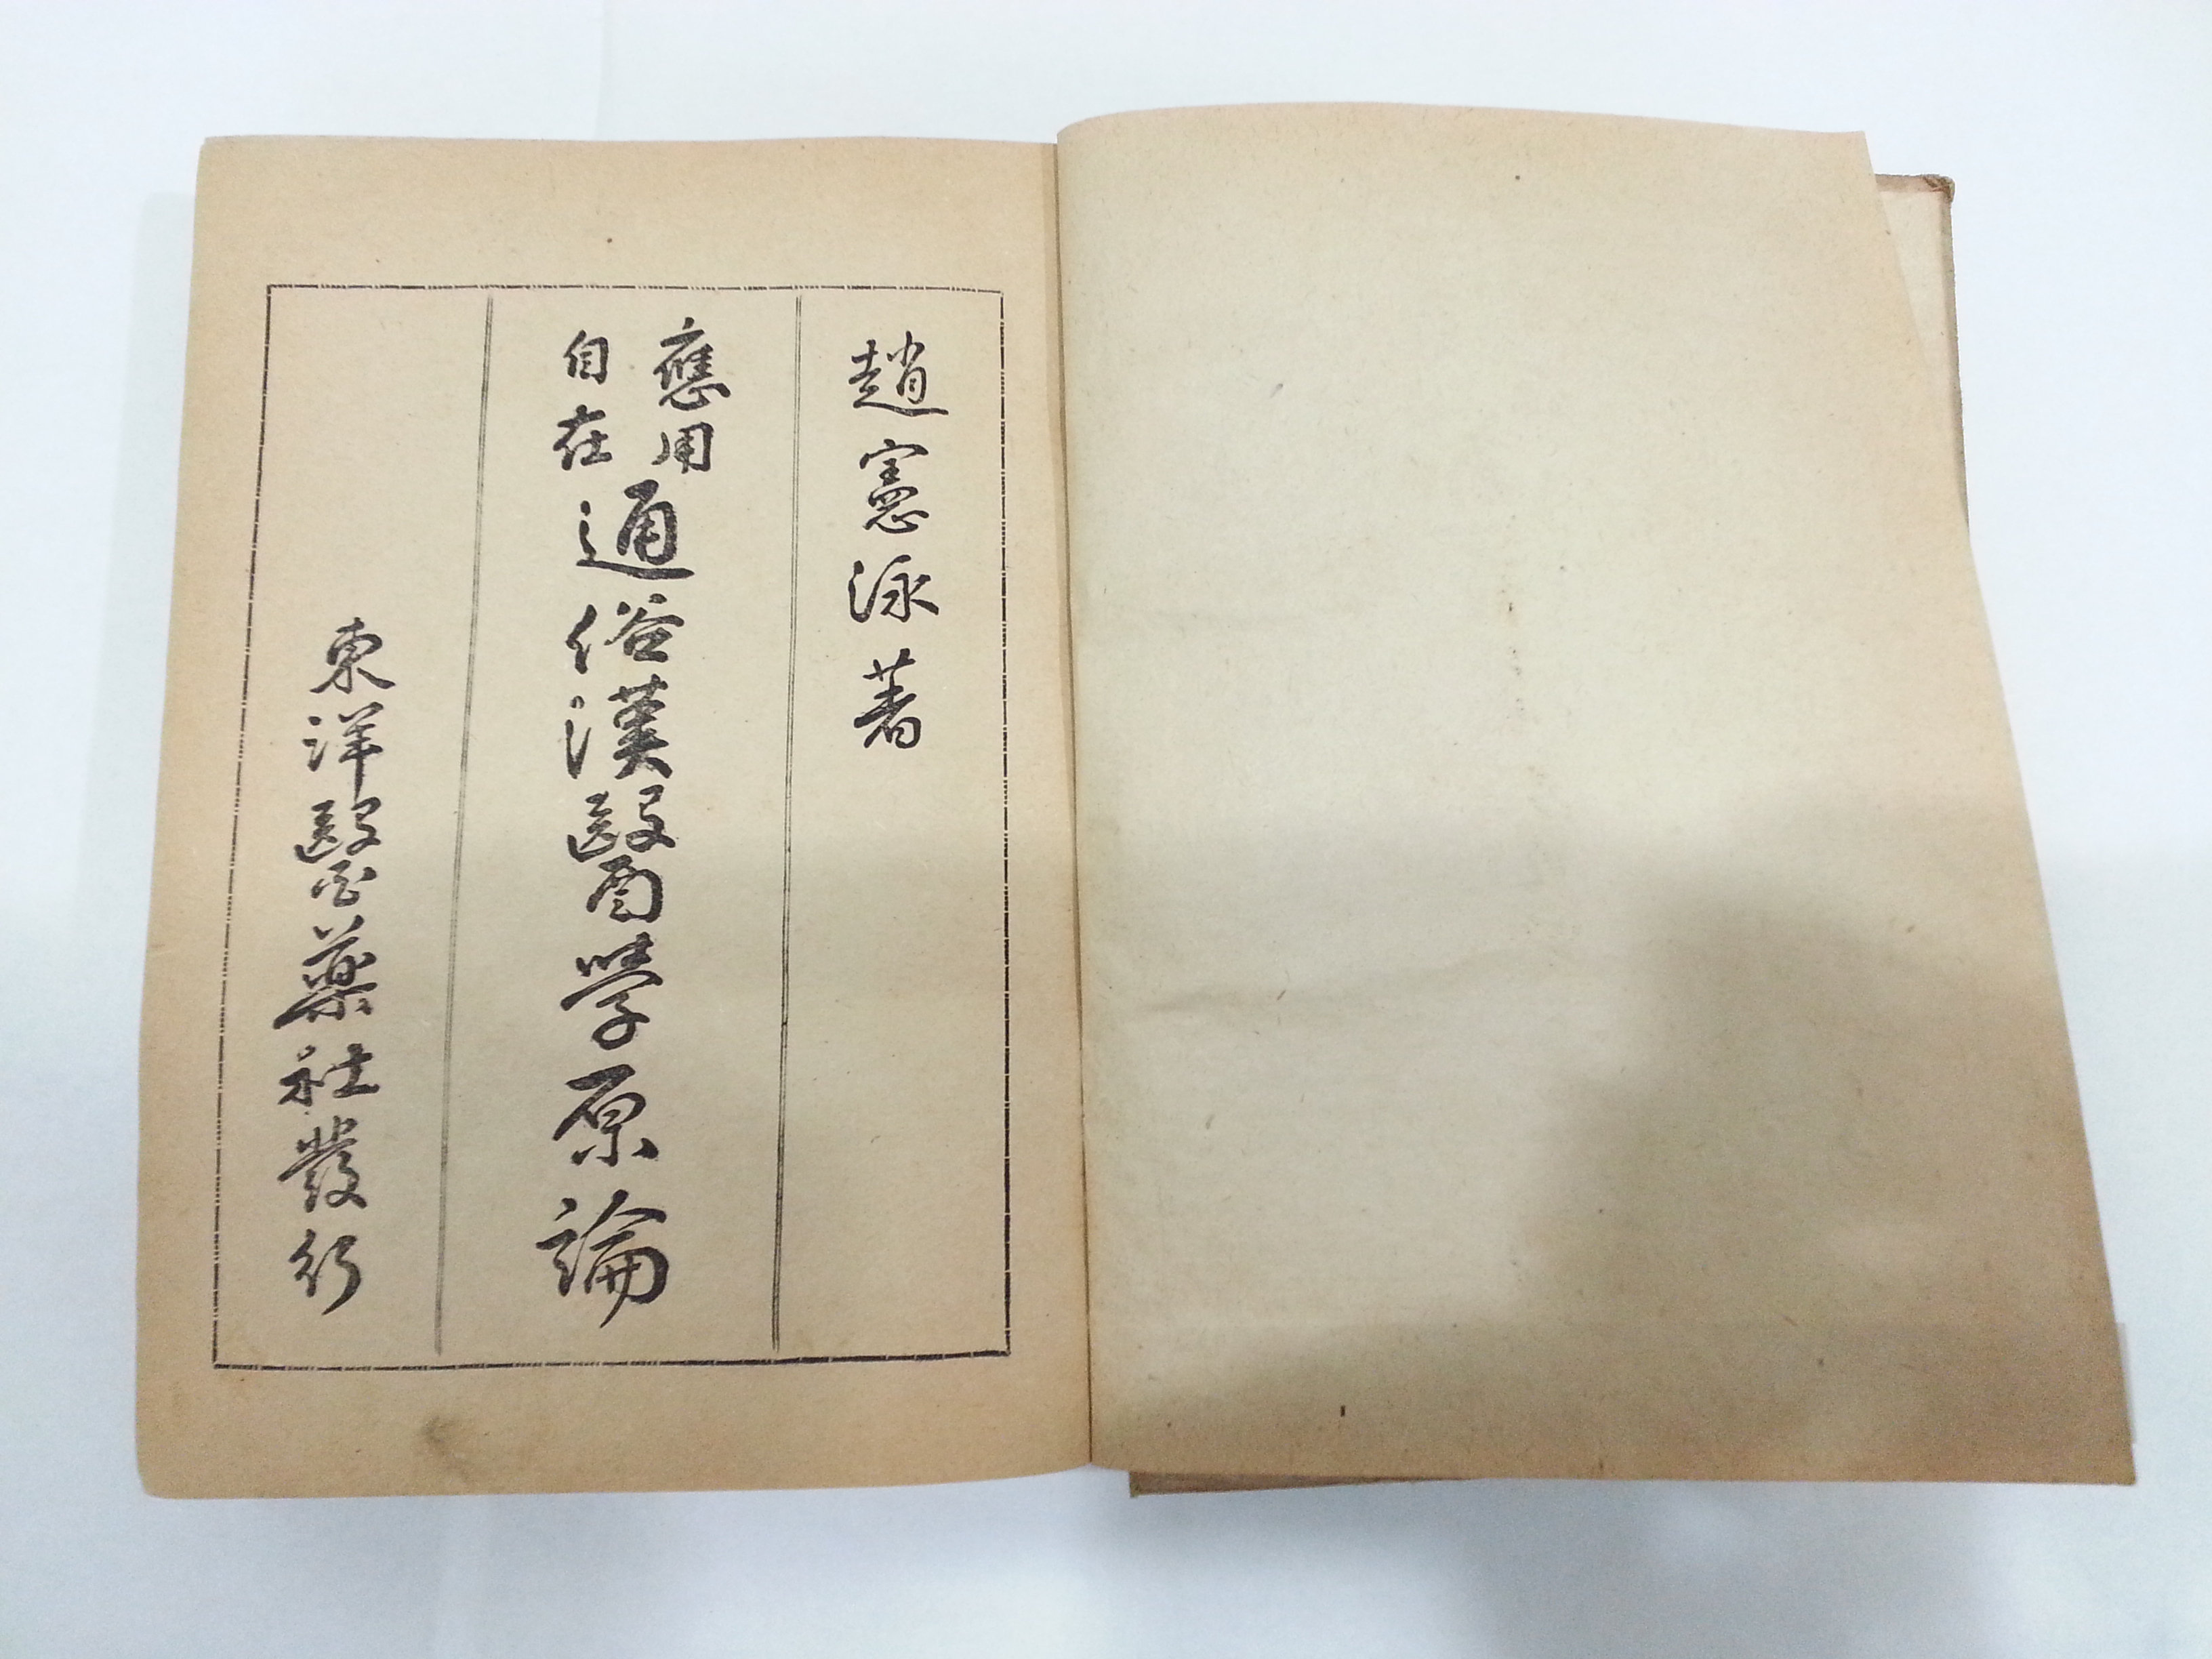 趙憲泳著
應用
自在
通俗漢醫學原論
東洋醫藥社發行